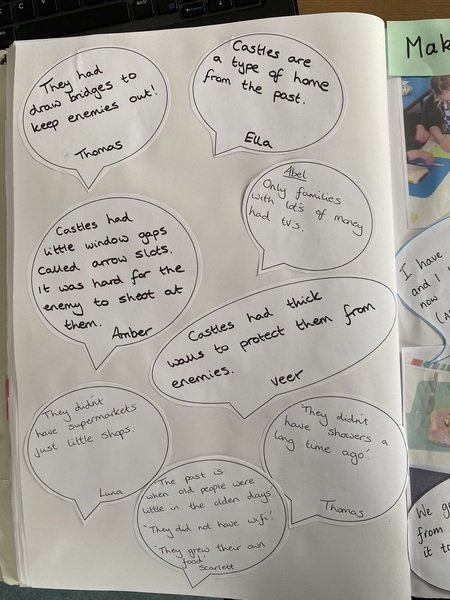 They had
draw bridges to
keep enemies out!
Thomas
Castles are
a type of home
from the past.
Ella
Abel
Only families
with lot's of money
had tv's.
Castles had
little window gaps
called arrow slots.
it was hard for the
enemy to shoot at
them.
Amber
Castles had thick
walls to protect them from
enemies.
veer
They didn't
have supermarkets
just little shops.
Luna
'They didn't
have showers a
long time ago'.
Thomas
'The past is
when old people were
little in the olden days
'They did not have wifi'.
'They grew their own
food'
Scarlett
Mak
I have
and I
now
We ge
from
it to